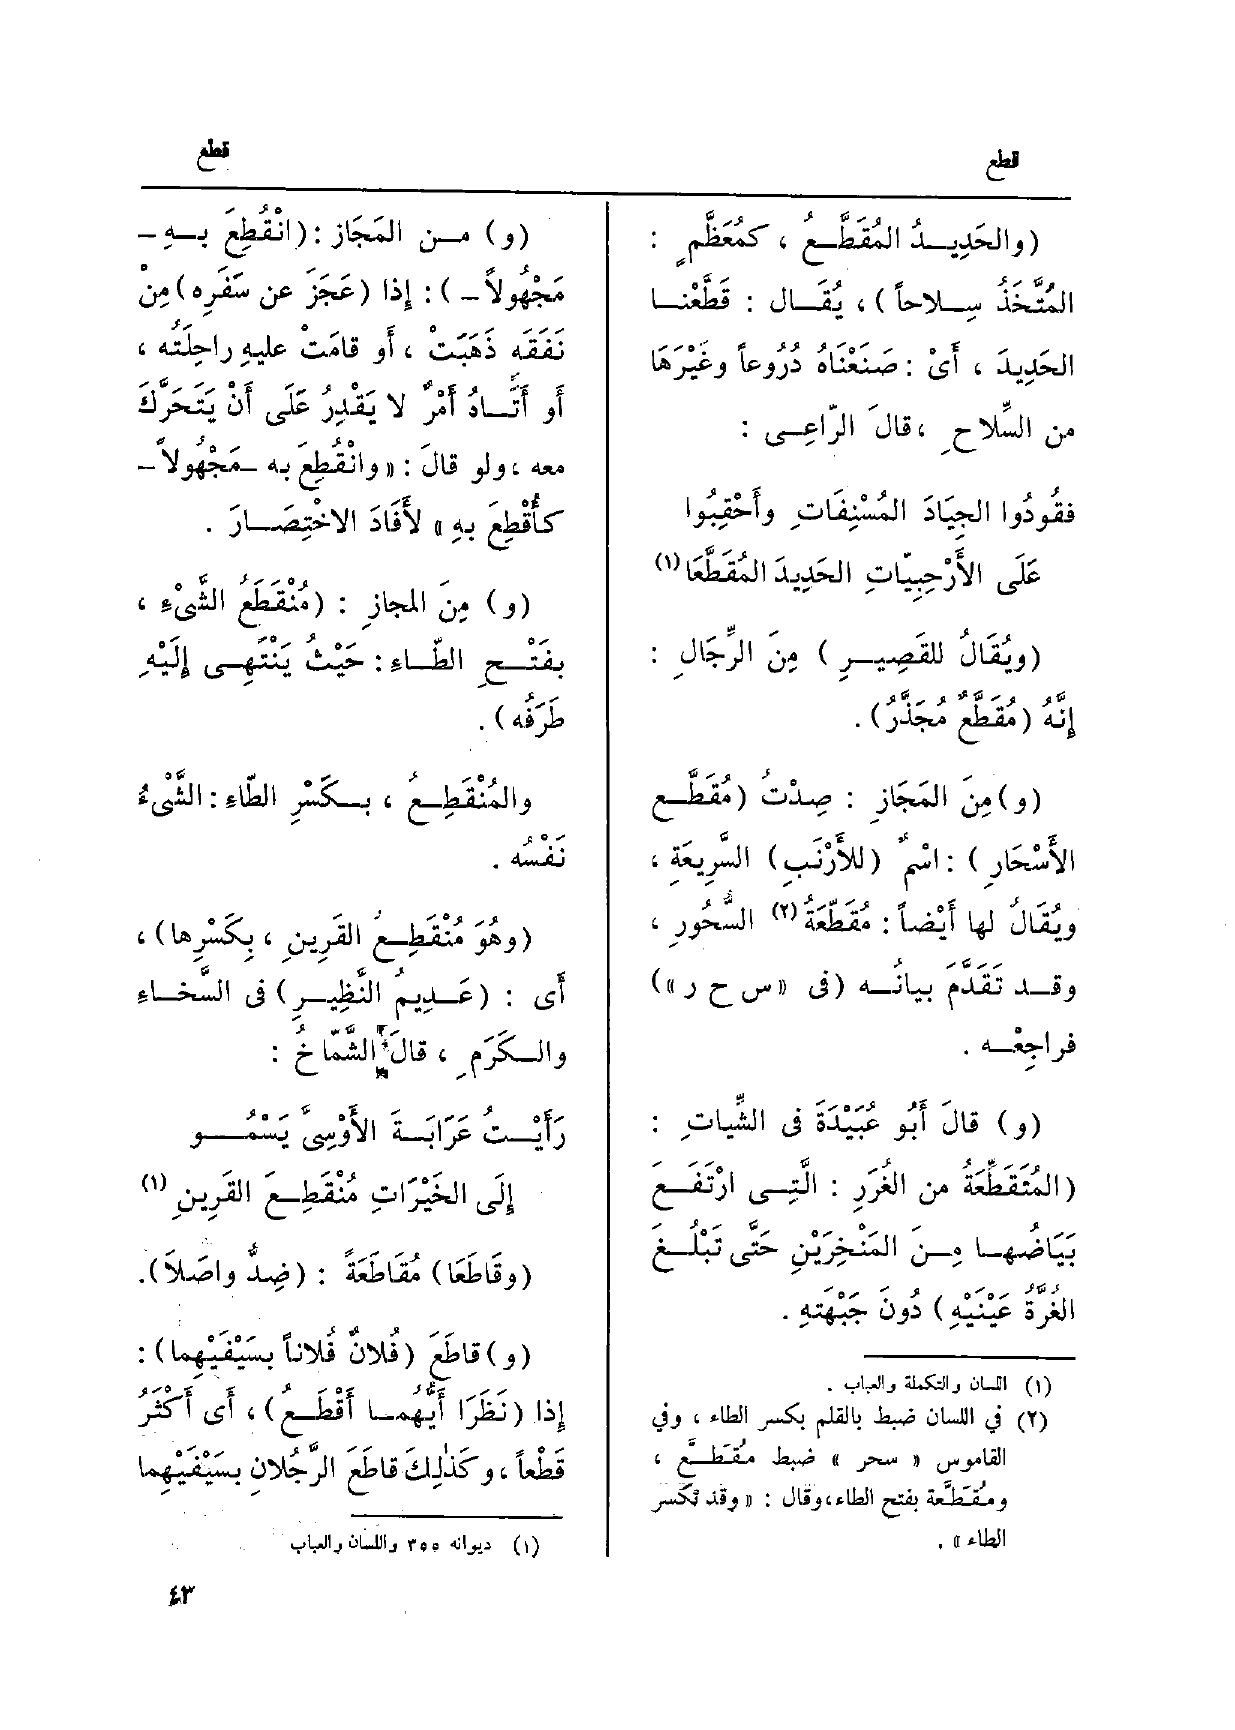 قطع
(والحَدِيدُ المُقَطَّعُ ، كمُعَظَّمٍ :
المُتَّخَذُ سِلاحاً) ، يُقَال : قَطَّعْنا
الحَدِيدَ ، أَىْ : صَنَعْنَاهُ دُرُوعاً وغَيْرَهَا
من السِّلاحِ ، قالَ الرّاعِى :
فقُودُوا الجِيَادَ المُسْنِفَاتِ وأَحْقِبُوا
عَلَى الأَرْحِبِيّاتِ الحَدِيدَ المُقَطَّعَا (١)
(ويُقَالُ للقَصِيرِ) مِنَ الرِّجَالِ :
إِنَّهُ (مُقَطَّعٌ مُجَذَّرٌ) .
(و) مِنَ المَجَازِ : صِدْتُ (مُقَطَّعَ
الأَسْحَارِ) : اسْمٌ (للأَرْنَبِ) السَّرِيعَةِ ،
ويُقَالُ لها أَيْضاً : مُقَطّعَةُ (٢) السُّحُورِ ،
وقد تَقَدَّمَ بيانُه (فى «س ح ر»)
فراجِعْه .
(و) قالَ أَبُو عُبَيْدَةَ فى الشِّيَاتِ :
(المُتَقَطِّعَةُ من الغُرَرِ : الَّتِى ارْتَفَعَ
بَيَاضُها مِنَ المَنْخِرَيْنِ حَتَّى تَبْلُغَ
الغُرَّةُ عَيْنَيْهِ) دُونَ جَبْهَتِهِ .
(١) اللسان والتكملة والعباب .
(٢) في اللسان ضبط بالقلم بكسر الطاء ، وفي
القاموس « سحر » ضبط مُقَطَّع ،
ومُقَطَّعة بفتح الطاء ، وقال : « وقد تكسر
الطاء » .
قطع
(و) من المَجَاز : (انْقُطِعَ بهِ -
مَجْهُولاً -) : إِذا (عَجَزَ عن سَفَرِه) مِنْ
نَفَقَه ذَهَبَتْ ، أَو قامَتْ عليهِ راحِلَتُه ،
أو أَتَاهُ أَمْرٌ لا يَقْدِرُ عَلَى أَنْ يَتَحَرَّكَ
معه ، ولو قالَ : « وانْقُطِعَ به - مَجْهُولاً -
كأُقْطِعَ بهِ » لأَفَادَ الاخْتِصَارَ .
(و) مِنَ المجازِ : (مُنْقَطَعُ الشَّىْءِ ،
بفَتْحِ الطّاءِ : حَيْثُ يَنْتَهِى إِلَيْهِ
طَرَفُه) .
والمُنْقَطِعُ ، بكَسْرِ الطّاءِ : الشَّىْءُ
نَفْسُه .
(وهُوَ مُنْقَطِعُ القَرِينِ ، بِكَسْرِها) ،
أَى : (عَدِيمُ النَّظِيرِ) فى السَّخاءِ
والكَرَمِ ، قالَ الشَّمّاخُ :
رَأَيْتُ عَرَابَةَ الأَوْسِىَّ يَسْمُو
إِلَى الخَيْرَاتِ مُنْقَطِعَ القَرِينِ (١)
(وقَاطَعَا) مُقَاطَعَةً : (ضِدُّ واصَلاَ) .
(و) قاطَعَ (فُلانٌ فُلاناً بسَيْفَيْهِما) :
إِذا (نَظَرَا أَيُّهُما أَقْطَعُ) ، أَى أَكْثَرُ
قَطْعاً ، وكَذٰلِكَ قاطَعَ الرَّجُلانِ بسَيْفَيْهِما
(١) ديوانه ٣٥٥ واللسان والعباب
٤٣